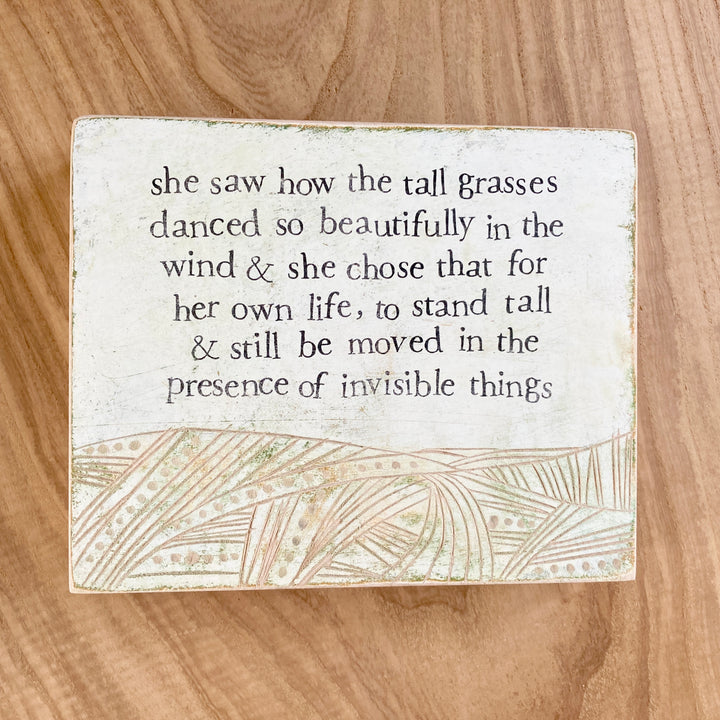 she saw how the tall grasses
danced so beautifully in the
wind & she chose that for
her own life, to stand tall
& still be moved in the
presence of invisible things